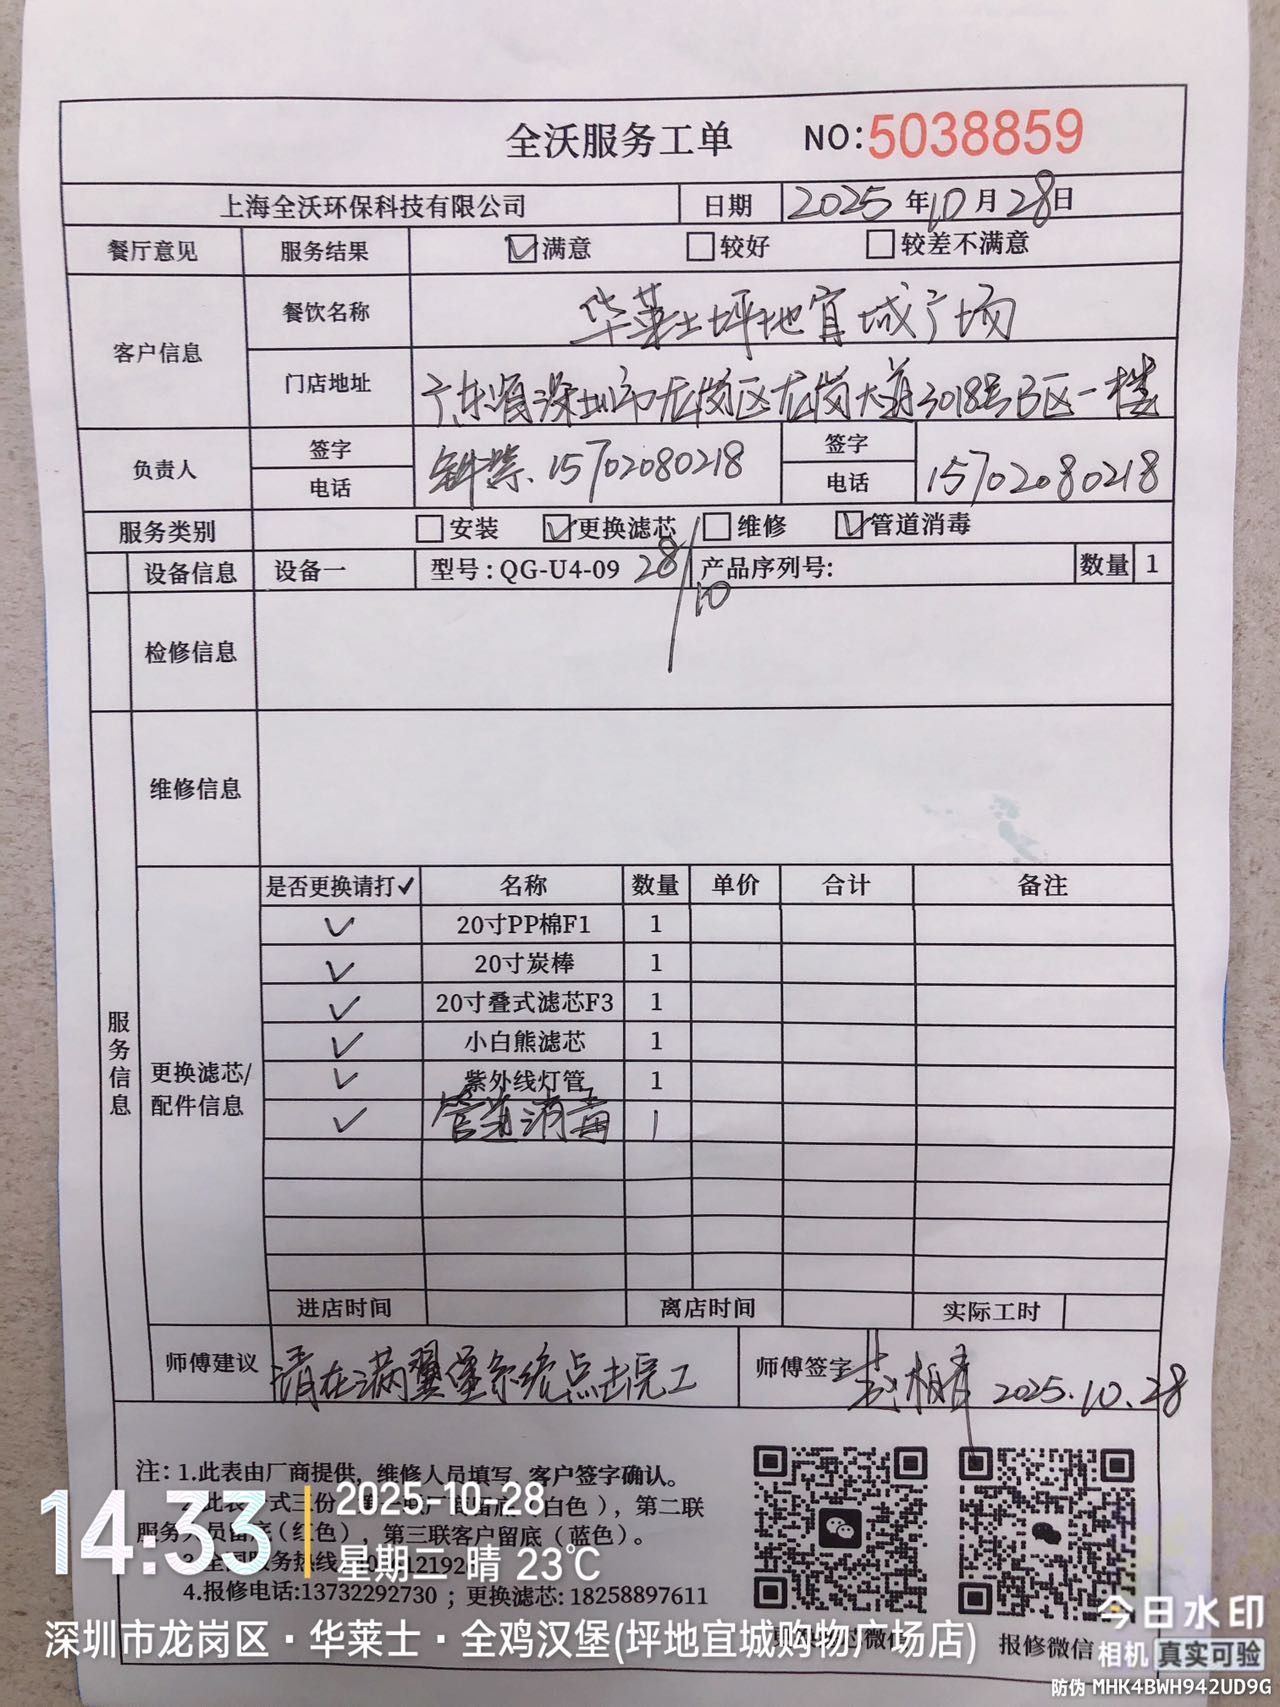 全沃服务工单 NO:5038859
上海全沃环保科技有限公司 日期 2025年10月28日
餐厅意见 服务结果 ☑满意 □较好 □较差不满意
客户信息 餐饮名称 华莱士坪地宜城广场
门店地址 广东省深圳市龙岗区龙岗大道3018号B区一楼
负责人 签字 电话 15702080218 签字 电话 15702080218
服务类别 □安装 ☑更换滤芯 □维修 ☑管道消毒
设备信息 设备一 型号:QG-U4-09 28/10 产品序列号: 数量 1
检修信息
维修信息
服务信息
更换滤芯/配件信息
是否更换请打✓ 名称 数量 单价 合计 备注
✓ 20寸PP棉F1 1
✓ 20寸炭棒 1
✓ 20寸叠式滤芯F3 1
✓ 小白熊滤芯 1
✓ 紫外线灯管 1
✓ 管道消毒 1
进店时间 离店时间 实际工时
师傅建议 请在满翼堡系统点击完工 师傅签字 2025.10.28
注:1.此表由厂商提供,维修人员填写,客户签字确认。
2.此表一式三份,(白色),第二联
服务人员留底(红色),第三联客户留底(蓝色)。
3.全国服务热线
4.报修电话:13732292730;更换滤芯:18258897611
报修微信
14:33
2025-10-28
星期二 晴 23℃
深圳市龙岗区·华莱士·全鸡汉堡(坪地宜城购物广场店)
今日水印
相机 真实可验
防伪 MHK4BWH942UD9G